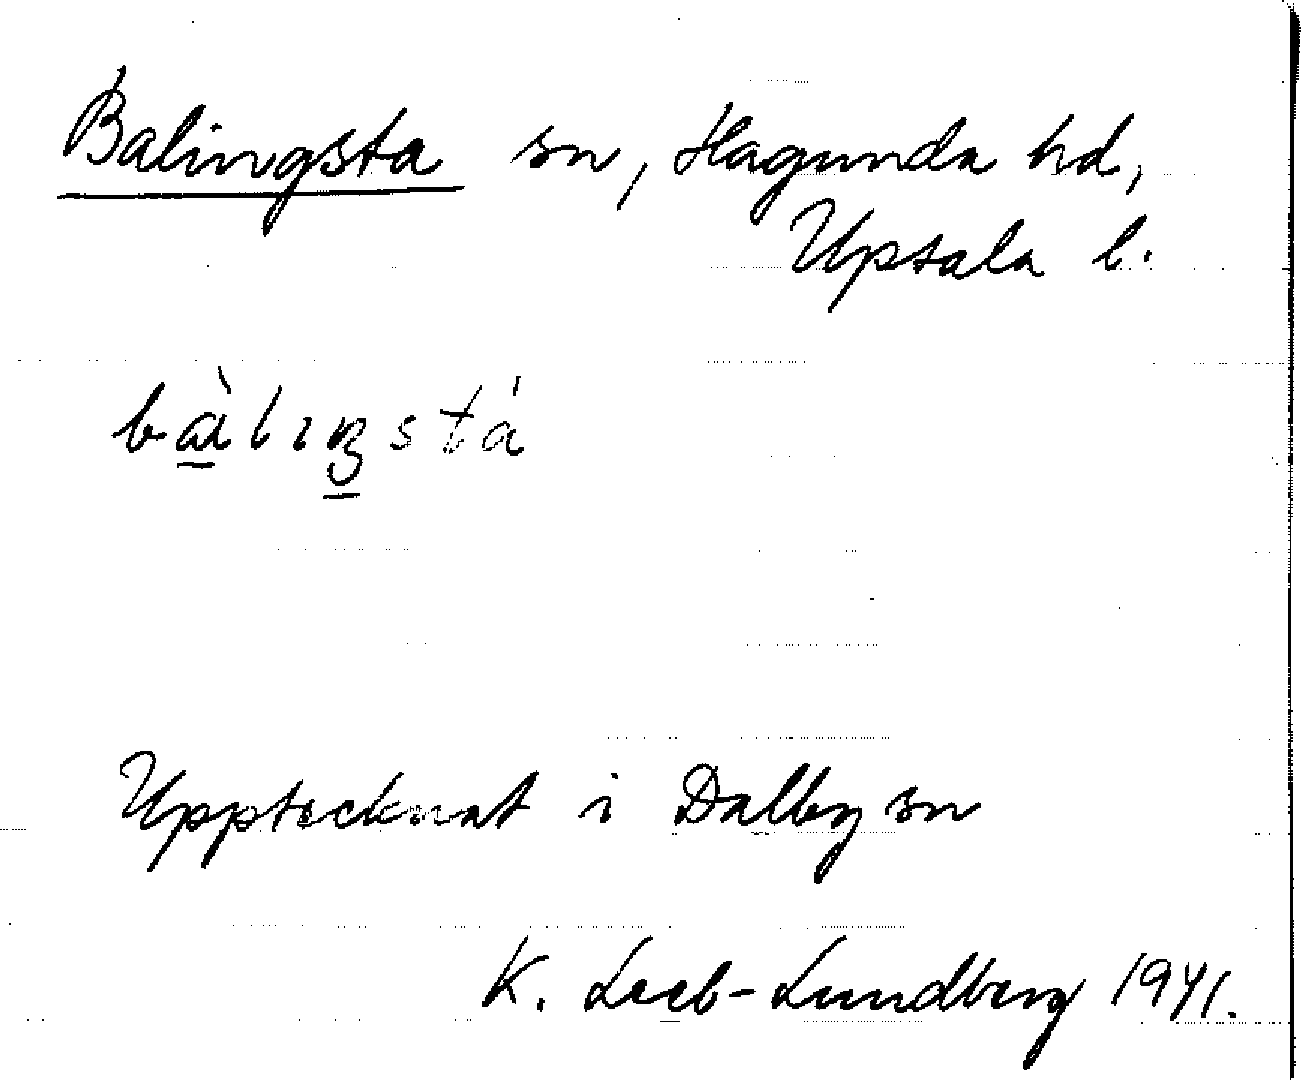 Balingsta sn, Hagunda hd,
Uppsala l.
bàlıŋstá
Upptecknat i Dalby sn
K. Leeb-Lundberg 1941.